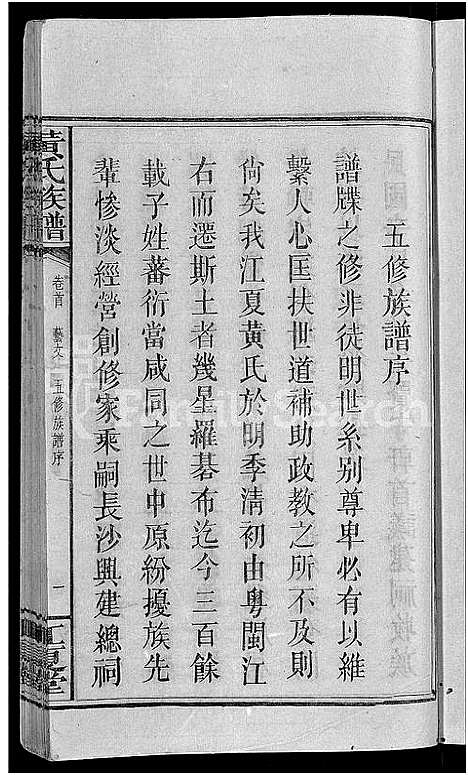 五修族譜序
譜牒之修非徒明世系别尊卑必有以維
繫人心匡扶世道補助政教之所不及則
尙矣我江夏黃氏於明季淸初由粵閩江
右而遷斯土者幾星羅碁布迄今三百餘
載子姓蕃衍當咸同之世中原紛擾族先
輩慘淡經營創修家乘嗣長沙興建總祠
黃氏族譜
卷首 藝文 五修族譜序
一
江夏堂
FamilySearch